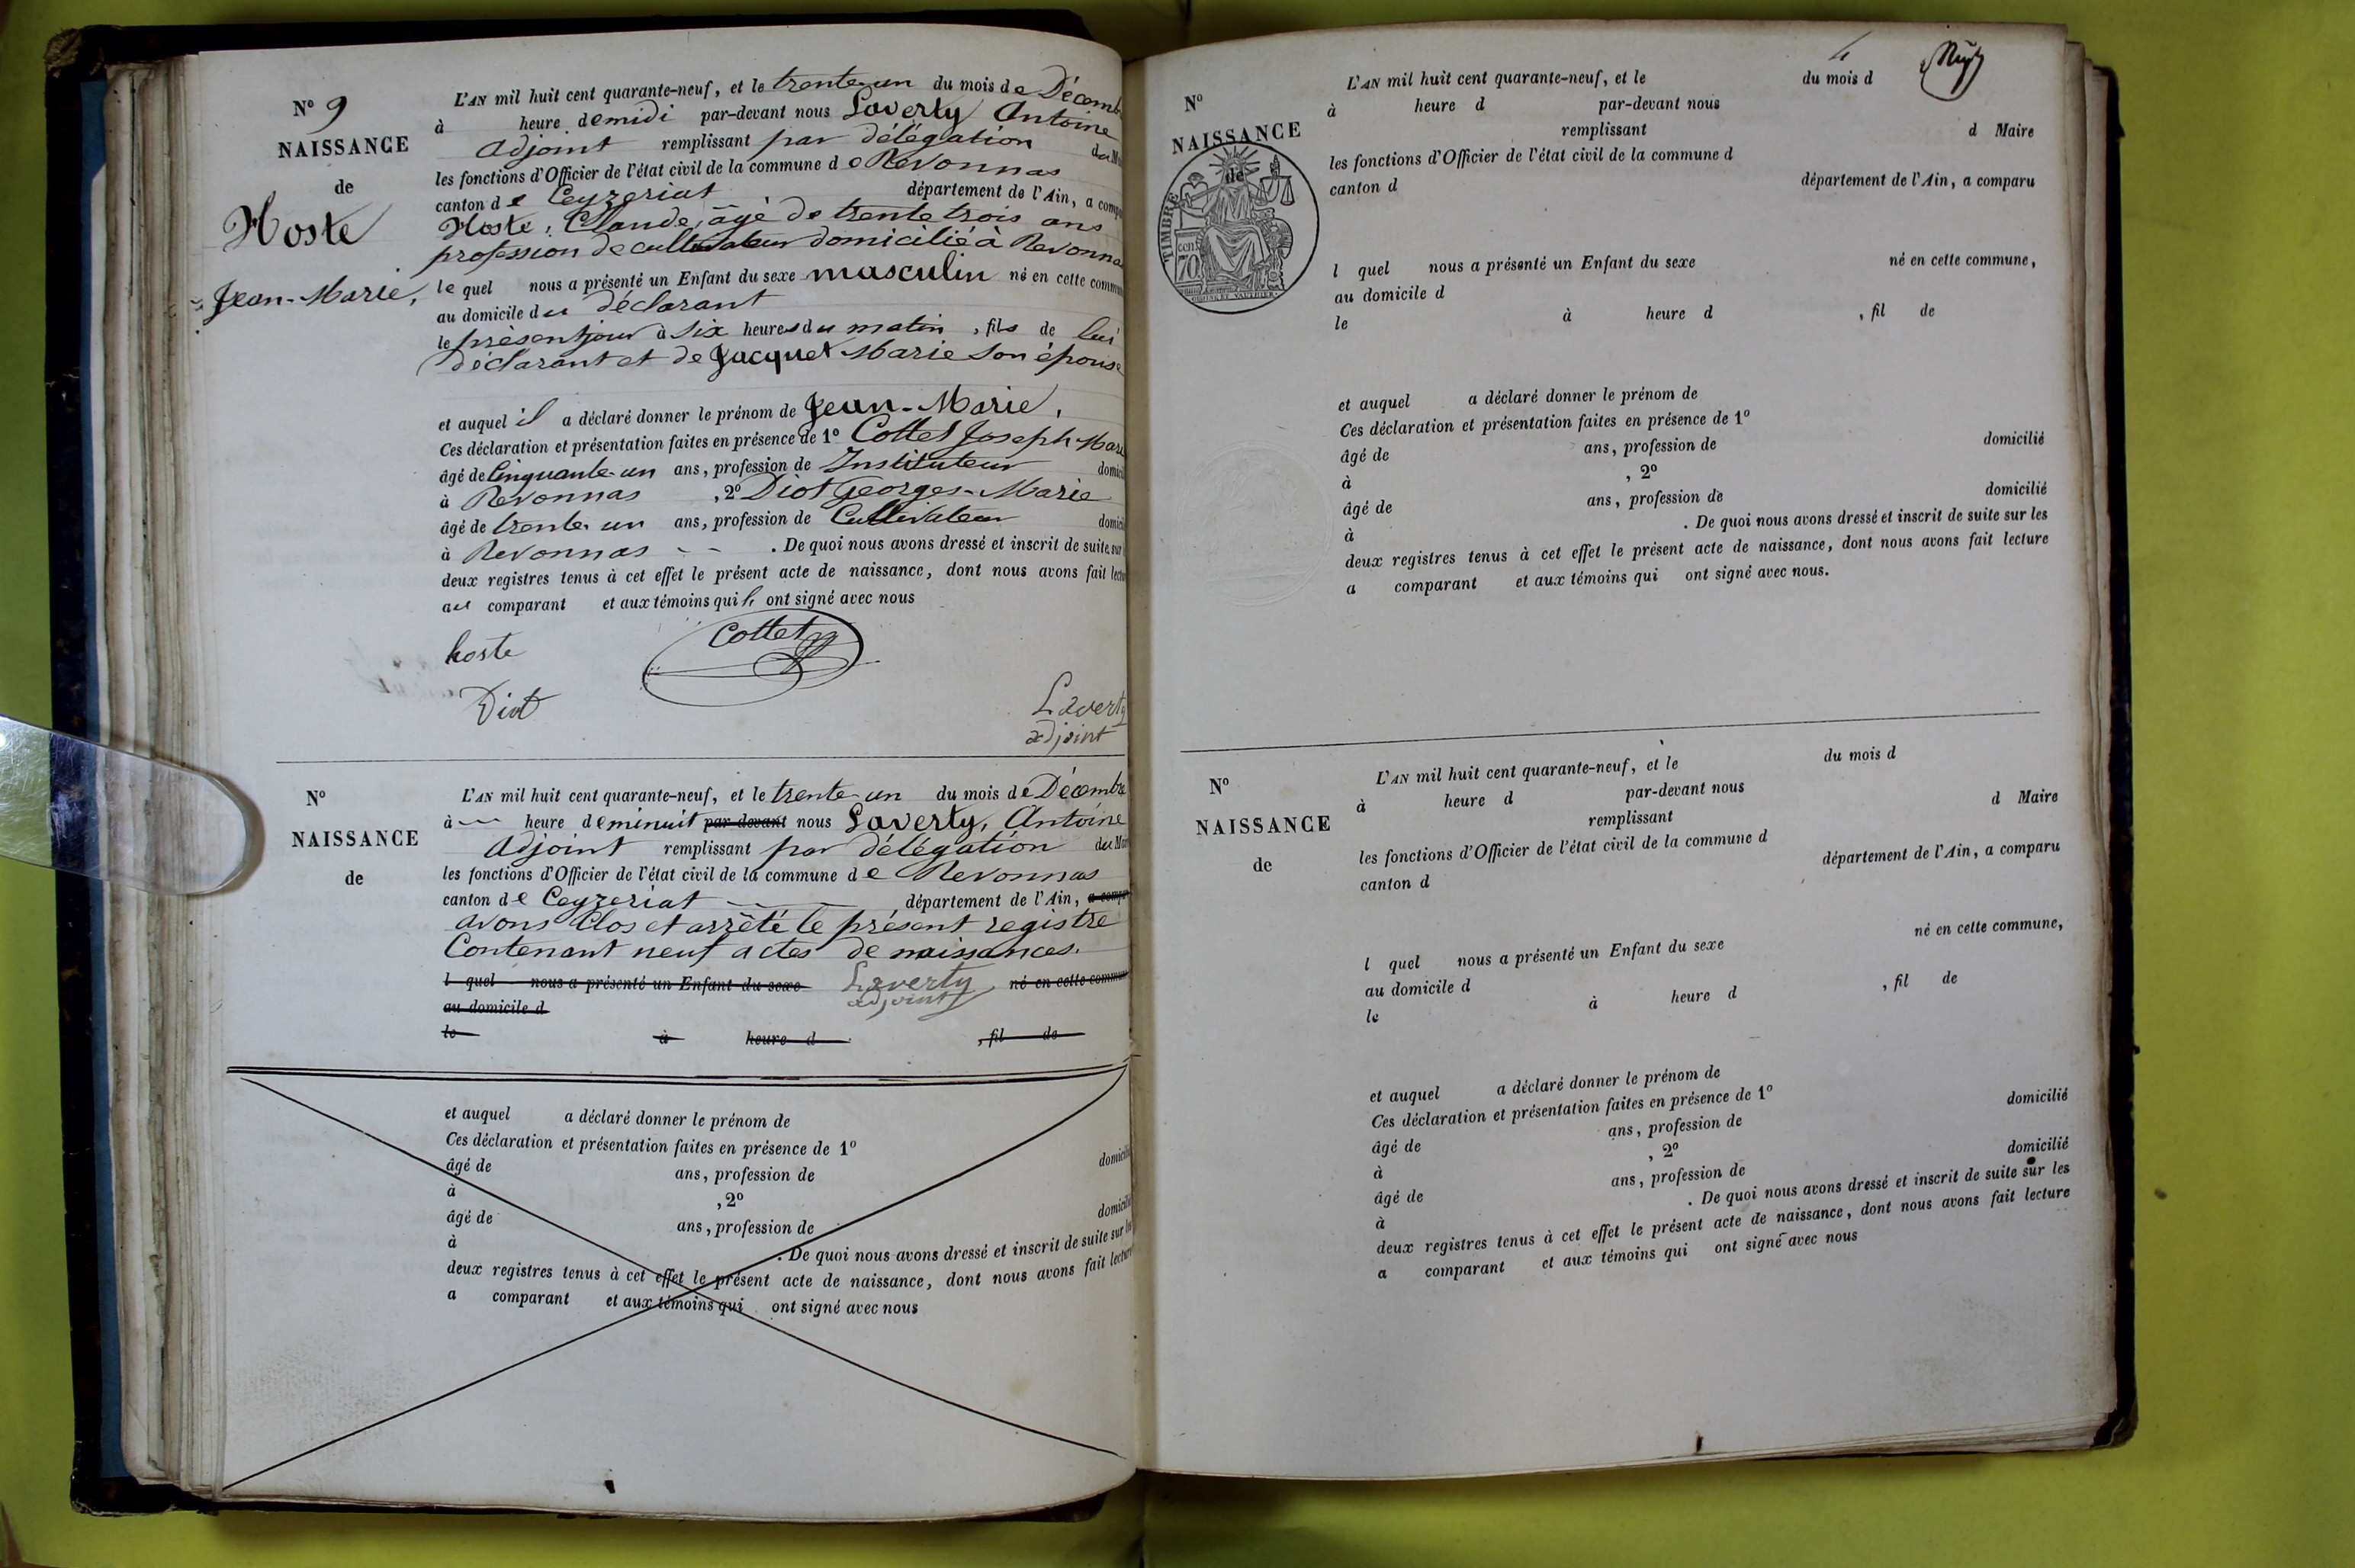 N° 9
NAISSANCE
de
Hoste
Jean-Marie,
L'AN mil huit cent quarante-neuf, et le trente-un du mois de Décemb
à heure de midi par-devant nous Laverty Antoine
Adjoint remplissant par délégation du M
les fonctions d'Officier de l'état civil de la commune de Revonnas
canton de Ceyzeriat département de l'Ain, a comp
Hoste, Claude, âgé de trente trois ans
profession de cultivateur domicilié à Revonna
lequel nous a présenté un Enfant du sexe masculin né en cette commu
au domicile du déclarant
le présent jour à six heures du matin, fils de lui
déclarant et de Jacquet Marie son épouse
et auquel il a déclaré donner le prénom de Jean-Marie,
Ces déclaration et présentation faites en présence de 1° Collet Joseph-Mari
âgé de Cinquante-un ans, profession de Instituteur domici
à Revonnas , 2° Diot Georges-Marie
âgé de trente-un ans, profession de Cultivateur domici
à Revonnas - - . De quoi nous avons dressé et inscrit de suite sur
deux registres tenus à cet effet le présent acte de naissance, dont nous avons fait lectu
au comparant et aux témoins qui ont signé avec nous
hoste
Cottet
Diot
Laverty
adjoint
N°
NAISSANCE
de
L'AN mil huit cent quarante-neuf, et le trente-un du mois de Décembre
à heure de minuit par-devant nous Laverty, Antoine
Adjoint remplissant par délégation du M
les fonctions d'Officier de l'état civil de la commune de Revonnas
canton de Ceyzeriat département de l'Ain, a comp
avons Clos et arrêté le présent registre
Contenant neuf actes de naissances.
l quel nous a présenté un Enfant du sexe Laverty né en cette commu
adjoint
au domicile d
le à heure d , fil de
et auquel a déclaré donner le prénom de
Ces déclaration et présentation faites en présence de 1°
âgé de ans, profession de domicilié
à , 2°
âgé de ans, profession de domicilié
à . De quoi nous avons dressé et inscrit de suite sur les
deux registres tenus à cet effet le présent acte de naissance, dont nous avons fait lecture
a comparant et aux témoins qui ont signé avec nous
N°
NAISSANCE
de
TIMBRE
70 cen
L'AN mil huit cent quarante-neuf, et le du mois d
à heure d par-devant nous
remplissant d Maire
les fonctions d'Officier de l'état civil de la commune d
canton d département de l'Ain, a comparu
l quel nous a présenté un Enfant du sexe né en cette commune,
au domicile d
le à heure d , fil de
et auquel a déclaré donner le prénom de
Ces déclaration et présentation faites en présence de 1°
âgé de ans, profession de domicilié
à , 2°
âgé de ans, profession de domicilié
à . De quoi nous avons dressé et inscrit de suite sur les
deux registres tenus à cet effet le présent acte de naissance, dont nous avons fait lecture
a comparant et aux témoins qui ont signé avec nous.
N°
NAISSANCE
de
L'AN mil huit cent quarante-neuf, et le du mois d
à heure d par-devant nous
remplissant d Maire
les fonctions d'Officier de l'état civil de la commune d
canton d département de l'Ain, a comparu
l quel nous a présenté un Enfant du sexe né en cette commune,
au domicile d
le à heure d , fil de
et auquel a déclaré donner le prénom de
Ces déclaration et présentation faites en présence de 1°
âgé de ans, profession de domicilié
à , 2°
âgé de ans, profession de domicilié
à . De quoi nous avons dressé et inscrit de suite sur les
deux registres tenus à cet effet le présent acte de naissance, dont nous avons fait lecture
a comparant et aux témoins qui ont signé avec nous